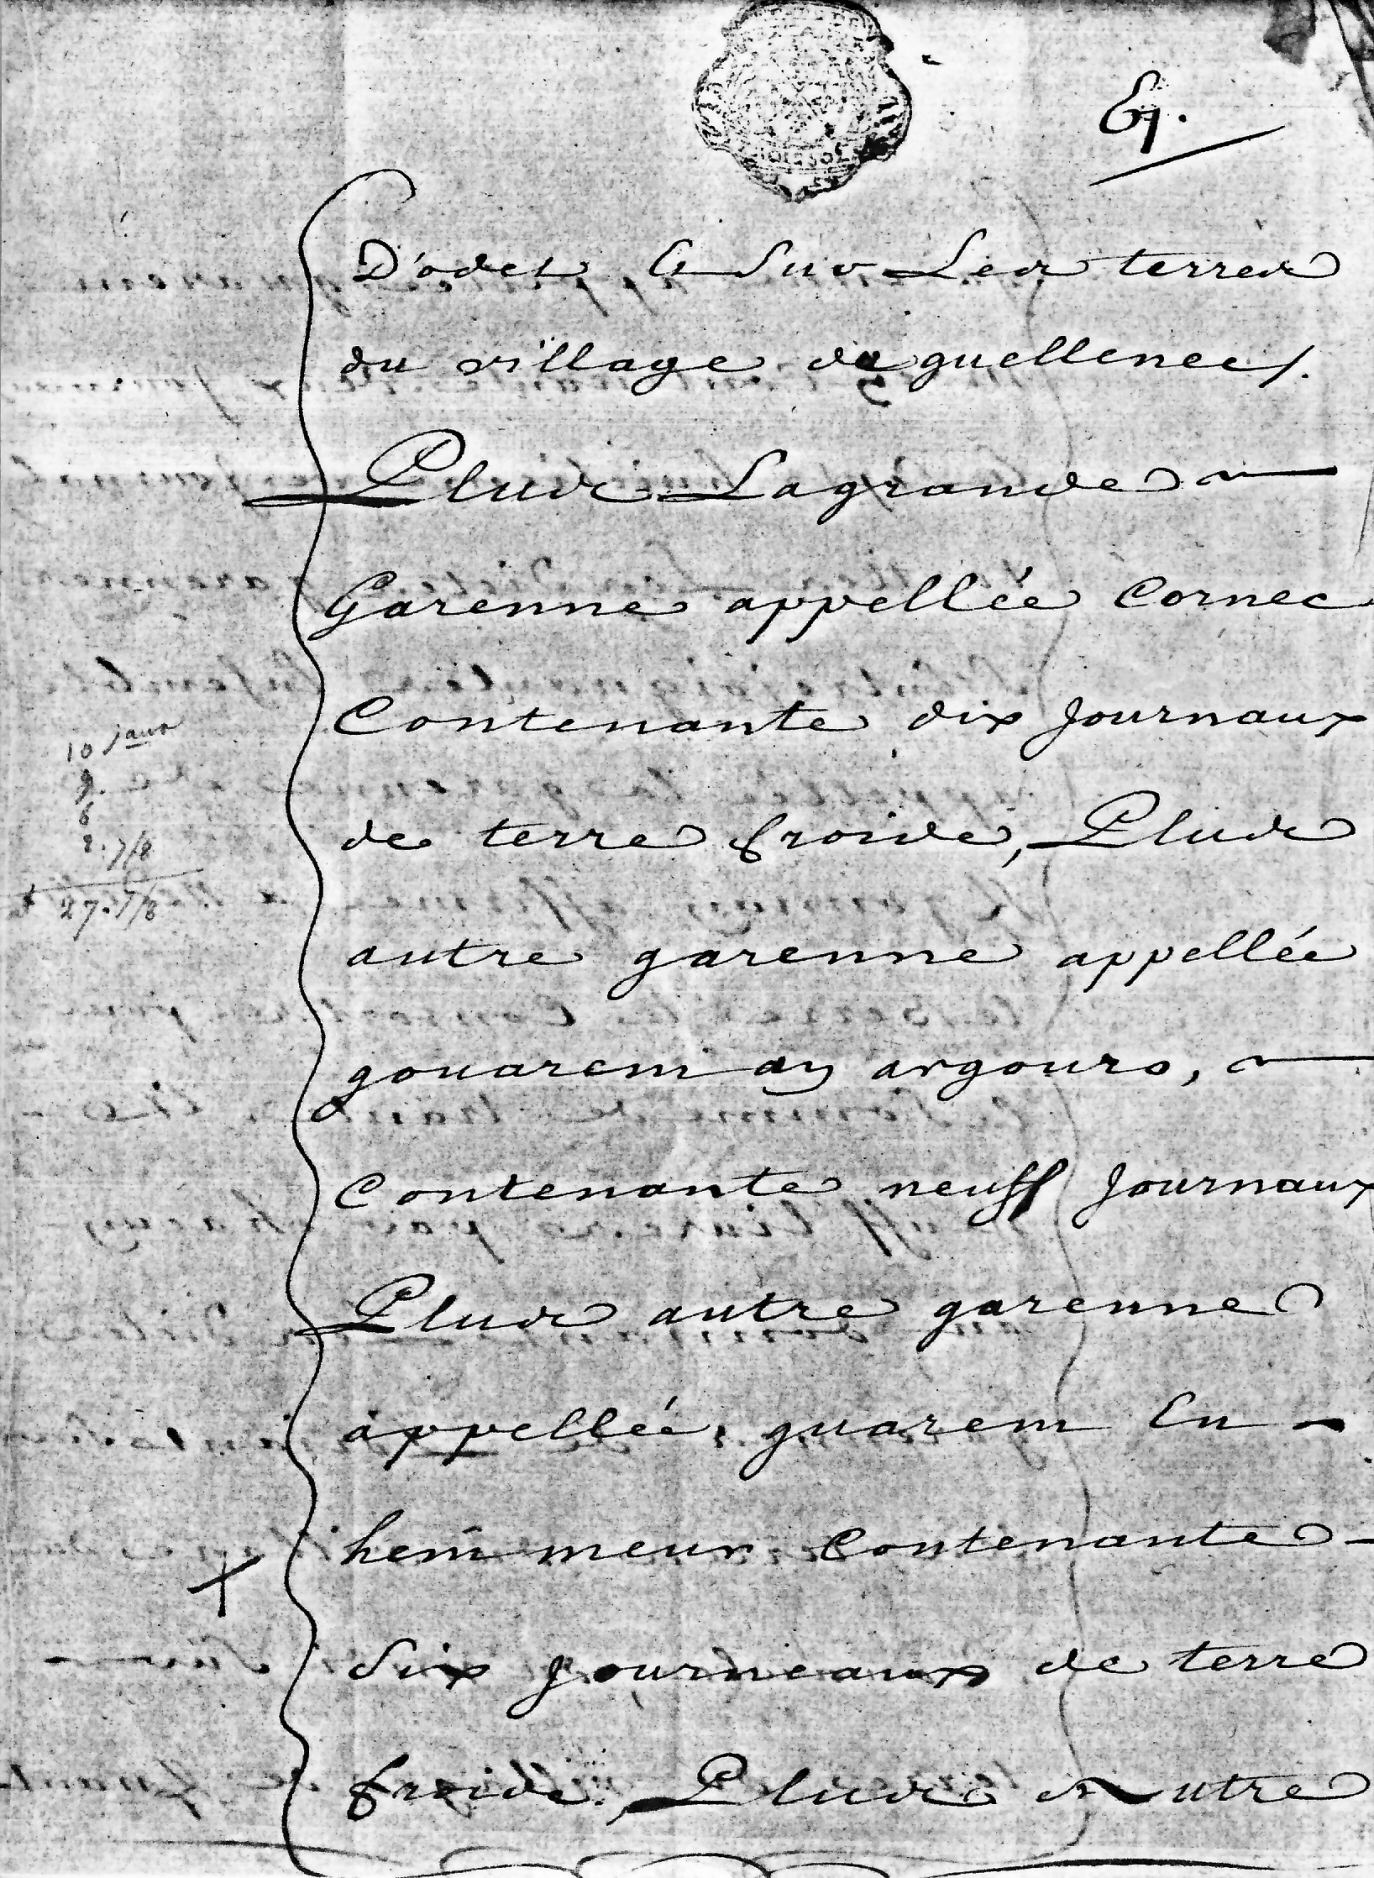 67.
D'odet Et Sur Les terres
du village de guellenec /.
Plus La grande
Garenne appellée Cornec
Contenante dix Journaux
10 Jaux
9.
6
2. 7/8
27. 7/8
de terre froide, Plus
autre garenne appellée
gouarem an argouro,
Contenante neuff Journaux
Plus autre garenne
appellée, guarem En
hem meur Contenante
Six Journeaux de terre
froide, Plus Autre